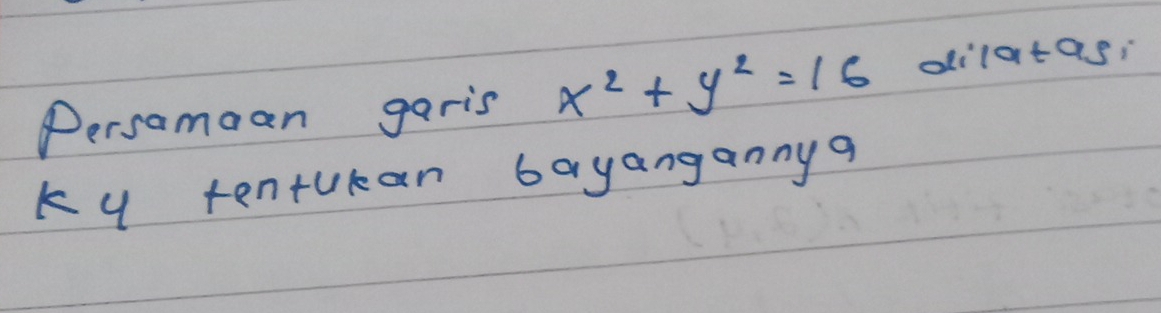 Persamaan garis x² + y² = 16 dilatasi
K 4 tentukan bayangannya